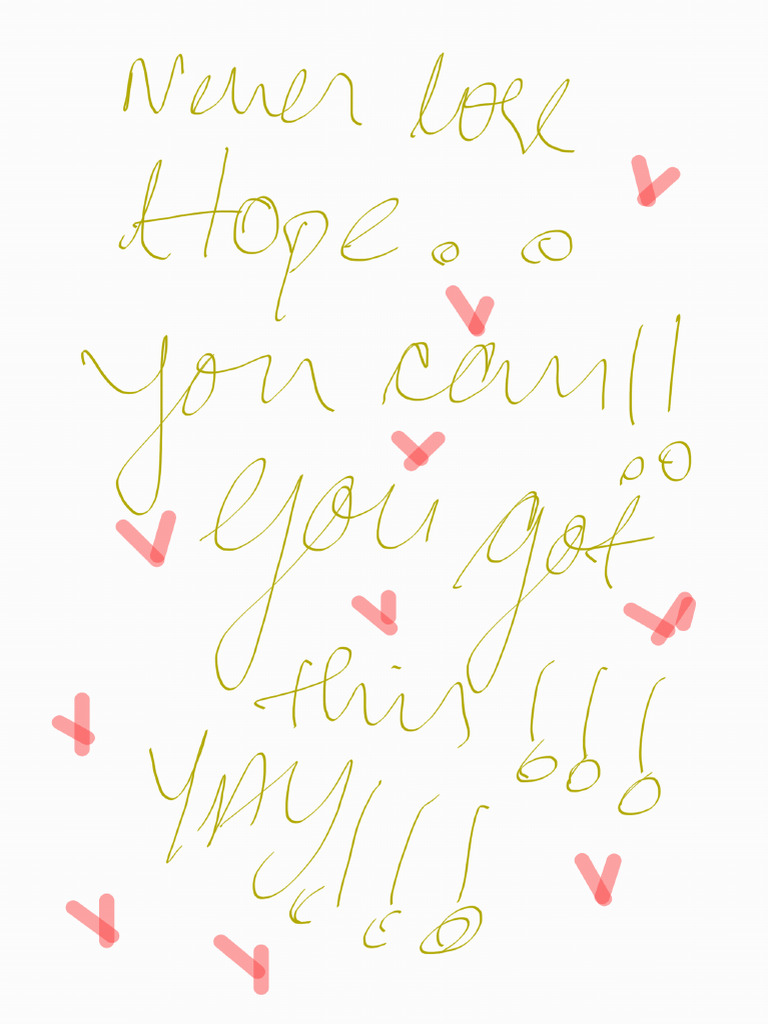 Never lose
Hope..
you can!!
you got
this!!!
YAY!!!